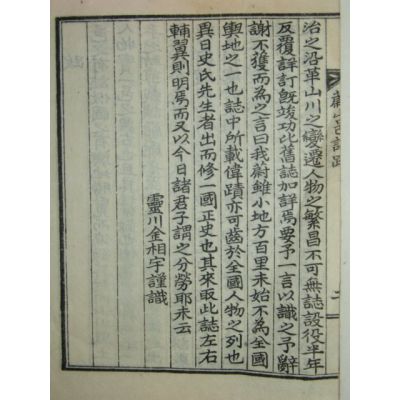 蔚山邑誌跋
治之沿革山川之變遷人物之繁昌不可無誌設役半年
反覆詳訂旣竣功比舊誌加詳焉要予一言以識之予辭
謝不獲而爲之言曰我蔚雖小地方百里未始不爲全國
輿地之一也誌中所載偉蹟亦可齒於全國人物之列也
異日史氏先生者出而修一國正史也其來取此誌左右
輔翼則明焉而又以今日諸君子謂之分勞耶未云
靈川金相宇謹識